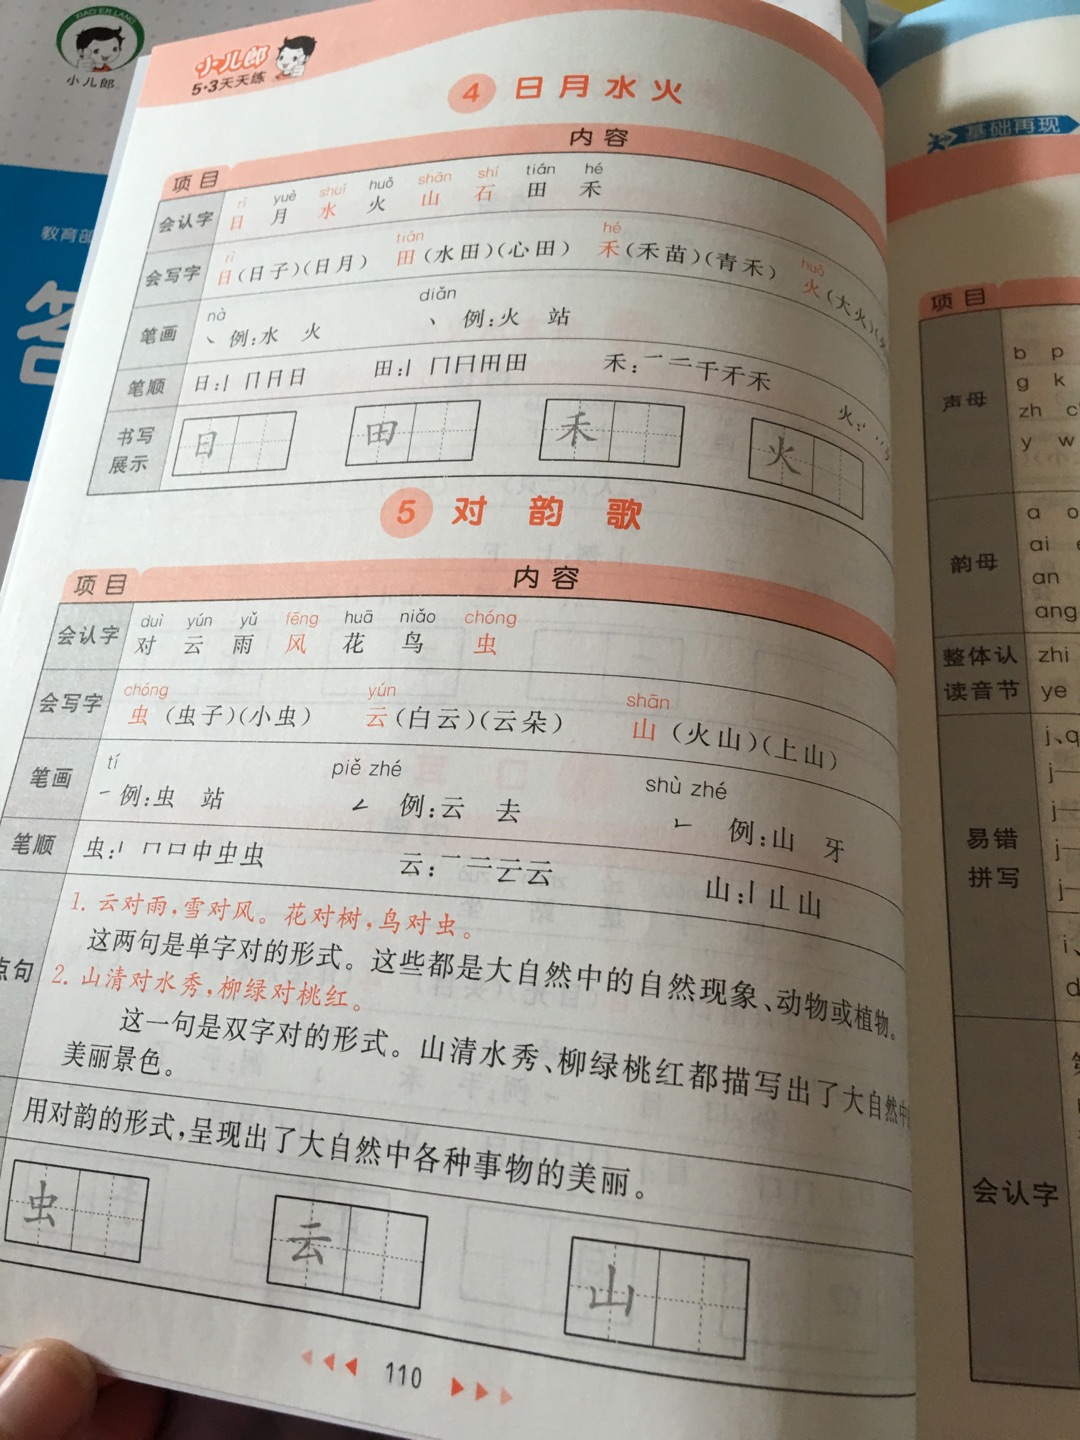 XIAO ER LANG
小儿郎
教育部
答
小儿郎
5·3天天练
4 日月水火
项目 内容
rì yuè shuǐ huǒ shān shí tián hé
会认字 日 月 水 火 山 石 田 禾
rì tián hé huǒ
会写字 日(日子)(日月) 田(水田)(心田) 禾(禾苗)(青禾) 火(大火)
nà diǎn
笔画 ㇏ 例:水 火 ㇔ 例:火 站
笔顺 日: 田: 禾: 火:
书写展示 日 田 禾 火
5 对韵歌
项目 内容
duì yún yǔ fēng huā niǎo chóng
会认字 对 云 雨 风 花 鸟 虫
chóng yún shān
会写字 虫(虫子)(小虫) 云(白云)(云朵) 山(火山)(上山)
tí piě zhé shù zhé
笔画 ㇀ 例:虫 站 ㇜ 例:云 去 ㇗ 例:山 牙
笔顺 虫: 云: 山:
点句
1. 云对雨,雪对风。花对树,鸟对虫。
这两句是单字对的形式。这些都是大自然中的自然现象、动物或植物。
2. 山清对水秀,柳绿对桃红。
这一句是双字对的形式。山清水秀、柳绿桃红都描写出了大自然中
美丽景色。
用对韵的形式,呈现出了大自然中各种事物的美丽。
虫 云 山
110
基础再现
项目
声母
b p
g k
zh
y w
韵母
a o
ai
an
ang
整体认读音节
zhi
ye
易错拼写
j、q
j
j
j
j
会认字